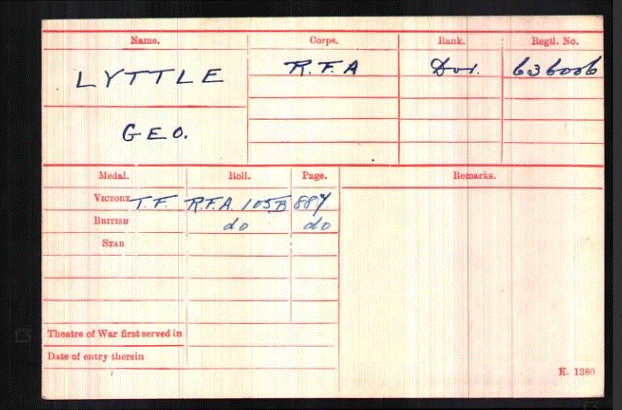 Name. Corps. Rank. Regtl. No.
LYTTLE R.F.A Dvr. 636006
GEO.
Medal. Roll. Page. Remarks.
VICTORY T.F. R.F.A. 105B 887
BRITISH do do
STAR
Theatre of War first served in
Date of entry therein
K. 1380